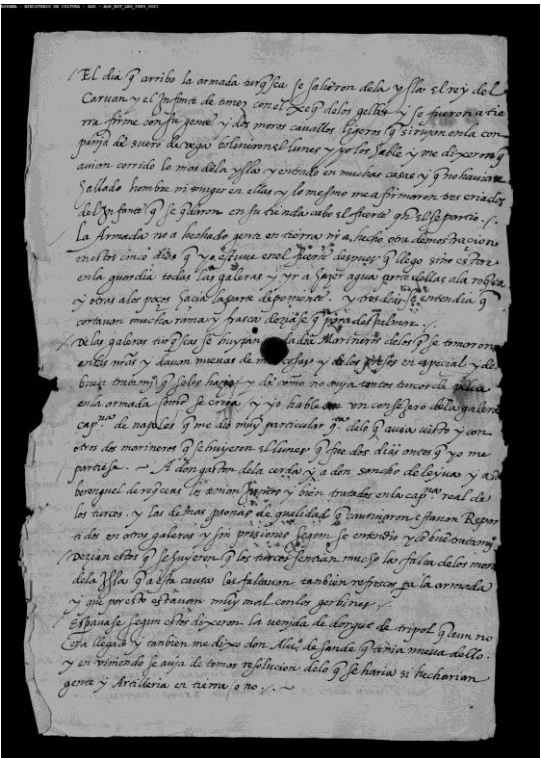 ESPAÑA - MINISTERIO DE CULTURA - AGS - AGS_EST_LEG_0485_0021
El dia q̃ arribo la armada turq̃sca se salieron de la ysla El rey del
Caruan y el Infante de tunez con el Xeq̃ de los gelbes y se fueron a tie
rra firme con su gente y dos moros cauallos ligeros q̃ siruyen en la con
pañia de suero de vega boluieron el lunes y yo los hable y me dixeron q̃
avian corrido lo mas de la ysla y entrado en muchas casas y q̃ no havian
hallado hombre ni muger en ellas y lo mesmo me afirmaron tres criados
del Infante q̃ se q̃daron en su tienda cabo el fuerte qñ el se partio ./.
La Armada no a hechado gente en tierra ni a hecho otra demostracion
en estos cinco dias q̃ yo estuue en el fuerte despues q̃ llego sino estar
en la guardia todas las galeras y yr a hazer agua parte dellas a la roq̃ta
y otras a los pozos hacia la parte de poniente . y tres dias se entendia q̃
cortauan mucha rama y frasca deziase q̃ para del palmar ./.
De las galeras turq̃scas se huyan cada dia Marineros de los q̃ se tomaron
en las nr̃as y dauan nueuas de cosas y de los presos en especial y de
buen tratamy.º q̃ se les hazia y de como no auia tantos turcos de pelea
en la armada como se creia y yo hable con un consejero de la galera
capna de napoles q̃ me dio muy particular qta de lo q̃ auia visto y con
otros dos marineros q̃ se huyeron El lunes q̃ fue dos dias antes q̃ yo me
partiese . ~ A don gaston de la cerda y a don sancho de leyua y a don
berenguel de req̃sens los tenian juntos y bien tratados en la capna real de
los turcos . y las demas p̃sonas de qualidad q̃ cautiuaron estauan Repar
tidos en otras galeras y sin prisiones segun se entendio y con buen tratamy.º
Dezian estos q̃ se huyeron q̃ los turcos sentian mucho la falta de los moros
de la Isla q̃ a esta causa les faltauan tanbien refrescos pa la armada
y que por esto estauan muy mal con los gerbines ./.
Esperauase segun estos dixeron la venida de dorgut de tripol q̃ aun no
era llegado y tanbien me dixo don Alu.º de sande q̃ tenia nueua dello .
y en viniendo se auia de tomar resolucion de lo q̃ se haria si hecharian
gente y Artilleria en tierra o no ./. ~